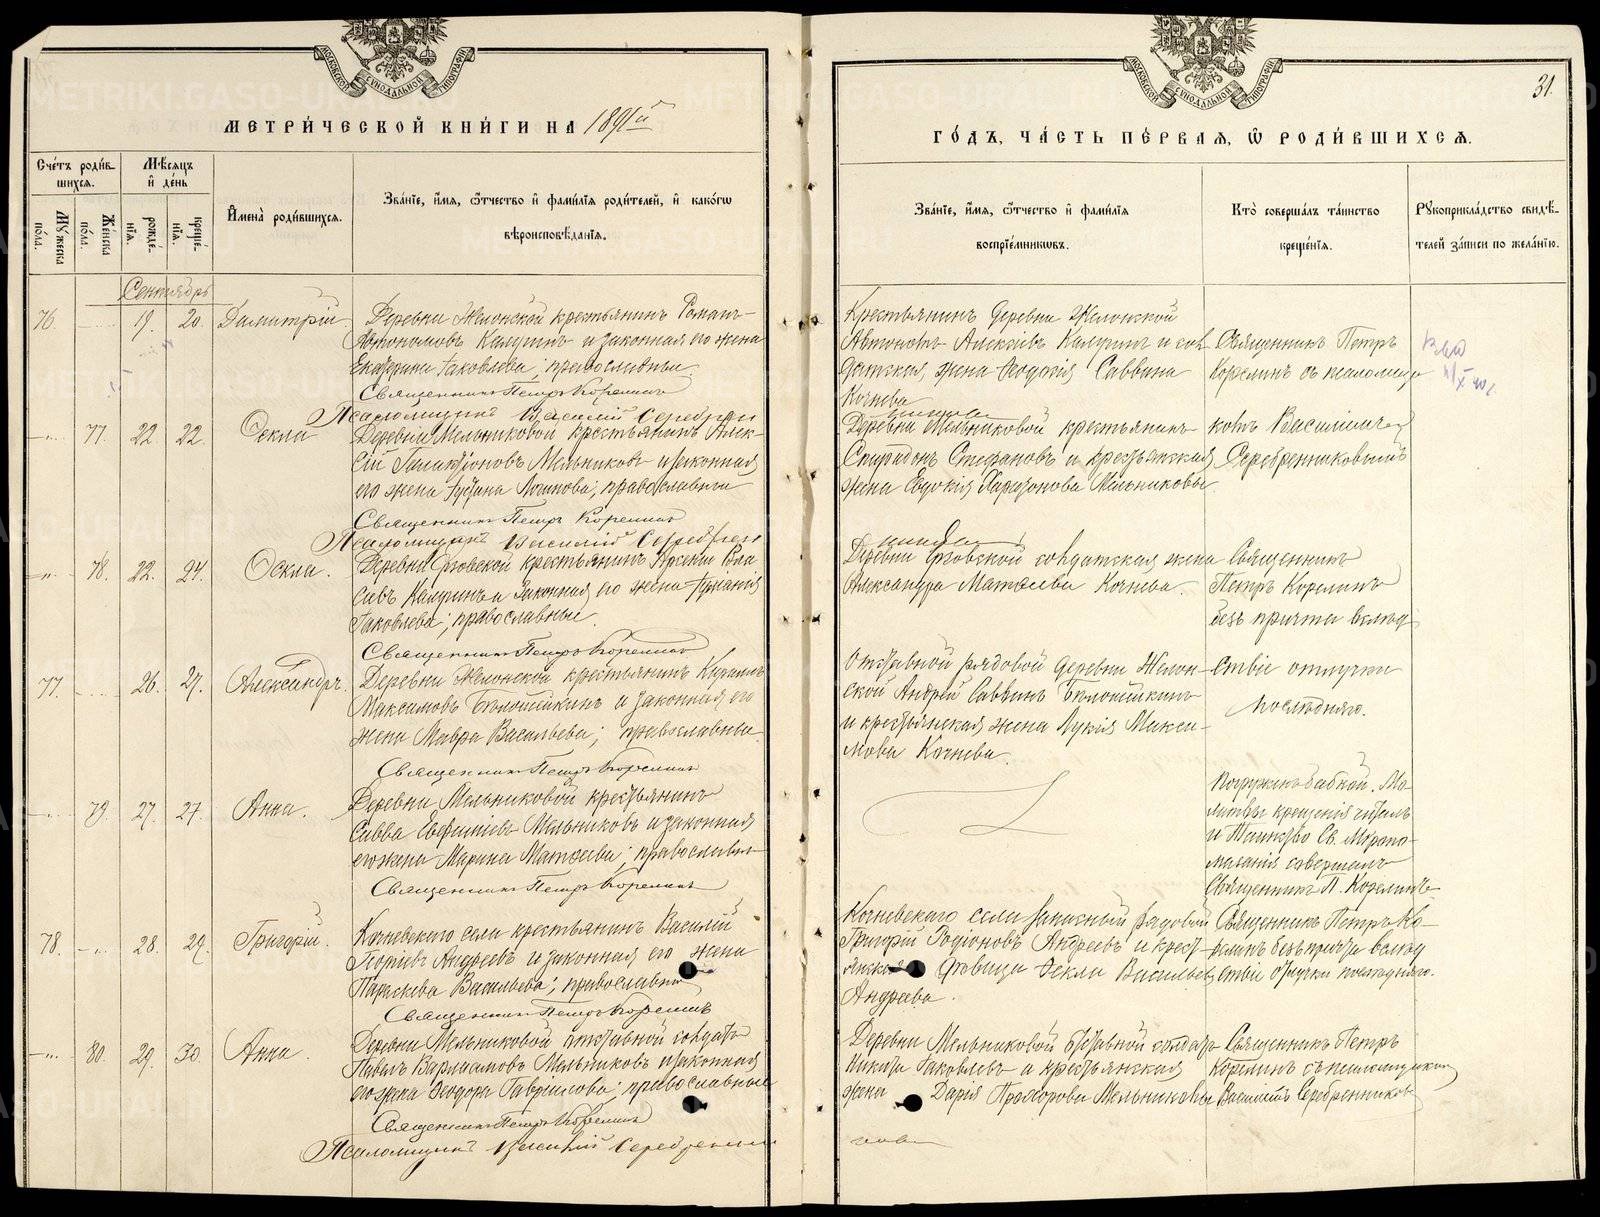 МОСКОВСКОЙ СѴНОДАЛЬНОЙ ТИПОГРАФІИ
МЕТРИ́ЧЕСКОЙ КНИ́ГИ НА 1891й
Сче́тъ роди́вшихся.
Мѣ́сяцъ и де́нь
Мꙋжеска по́ла.
Же́нска по́ла.
рожде́нїя.
креще́нїя.
И҆мена̀ роди́вшихся.
Зва́нїе, и҆́мя, ѻ҆́тчество и҆ фами́лїя роди́телей, и҆ како́гѡ вѣроисповѣ́данїя.
Сентябрь
76. 19. 20. Димитрій.
Деревни Жемонской крестьянинъ Романъ
Автономовъ Калугинъ и законная его жена
Екатерина Іаковлева; православные
Священникъ Петръ Корелинъ
Псаломщикъ Василій Серебрен
77. 22 22. Ѳекла
Деревни Мельниковой крестьянинъ Алек-
сій Галактіоновъ Мельниковъ и законная
его жена Логинова; православные
Священникъ Петръ Корелинъ
Псаломщикъ Василій Серебрен
78. 22. 24. Ѳекла.
Деревни крестьянинъ Арсеній Вла
совъ Калугинъ и Законная его жена
Іаковлева; православные.
Священникъ Петръ Корелинъ
77. 26. 27. Александръ.
Деревни Жемонской крестьянинъ Кириллъ
Максимовъ и законная его
жена Мавра Васильева; православные
Священникъ Петръ Корелинъ
79. 27. 27. Анна.
Деревни Мельниковой крестьянинъ
Савва Евфиміевъ Мельниковъ и законная
его жена Марина Матѳеева; православные
Священникъ Петръ Корелинъ
78. 28. 29. Григорій.
Кочневскаго села крестьянинъ Василій
Георгіевъ Андреевъ и законная его жена
Параскева Васильева; православные
Священникъ Петръ Корелинъ
80. 29. 30. Анна.
Деревни Мельниковой отставной солдатъ
Павелъ Варлаамовъ Мельниковъ и законная
его жена Ѳеодора Гаврилова; православные
Священникъ Петръ Корелинъ
Псаломщикъ Василій Серебренни
МОСКОВСКОЙ СѴНОДАЛЬНОЙ ТИПОГРАФІИ
31.
ГО́ДЪ, ЧА́СТЬ ПЕ́РВАЯ, Ѡ҆ РОДИ́ВШИХСЯ.
Зва́нїе, и҆́мя, ѻ҆́тчество и҆ фами́лїя воспрїе́мникѡвъ.
Кто̀ соверша́лъ та́инство креще́нїя.
Рꙋкоприкла́дство свидѣ́телей за́писи по жела́нїю.
Крестьянинъ деревни Жемонской
Автономъ Алексіевъ Калугинъ и сол
датская жена Ѳеодосія Саввина
Кочнева
Священникъ Петръ
Корелинъ съ псаломщи
Деревни Мельниковой крестьянинъ
Спиридонъ Стефановъ и крестьянская
жена Евдокія Харитонова Мельниковы.
комъ Василіемъ
Серебренниковымъ
Деревни солдатская жена
Александра Матѳеева Кочнева.
Священникъ
Петръ Корелинъ
безъ причта вслѣд
ствіе отлучки
послѣдняго.
Отставной рядовой деревни Жемон-
ской Андрей Саввинъ
и крестьянская жена Лукія Макси-
мова Кочнева.
Погружен бабкой. Мо-
литвы крещенія читалъ
и Таинство Св. Мѵропо-
мазанія совершалъ
Священникъ П. Корелинъ
Кочневскаго села Запасный рядовой
Григорій Родіоновъ Андреевъ и кресть-
янская дѣвица Ѳекла Васильева
Андреева.
Священникъ Петръ Ко-
релинъ безъ причта вслѣд
ствіе отлучки послѣдняго.
Деревни Мельниковой отставной солдатъ
Никита Іаковлевъ и крестьянская
жена Дарія Прохорова Мельниковы
Священникъ Петръ
Корелинъ съ псаломщикомъ
Василіемъ Серебренников